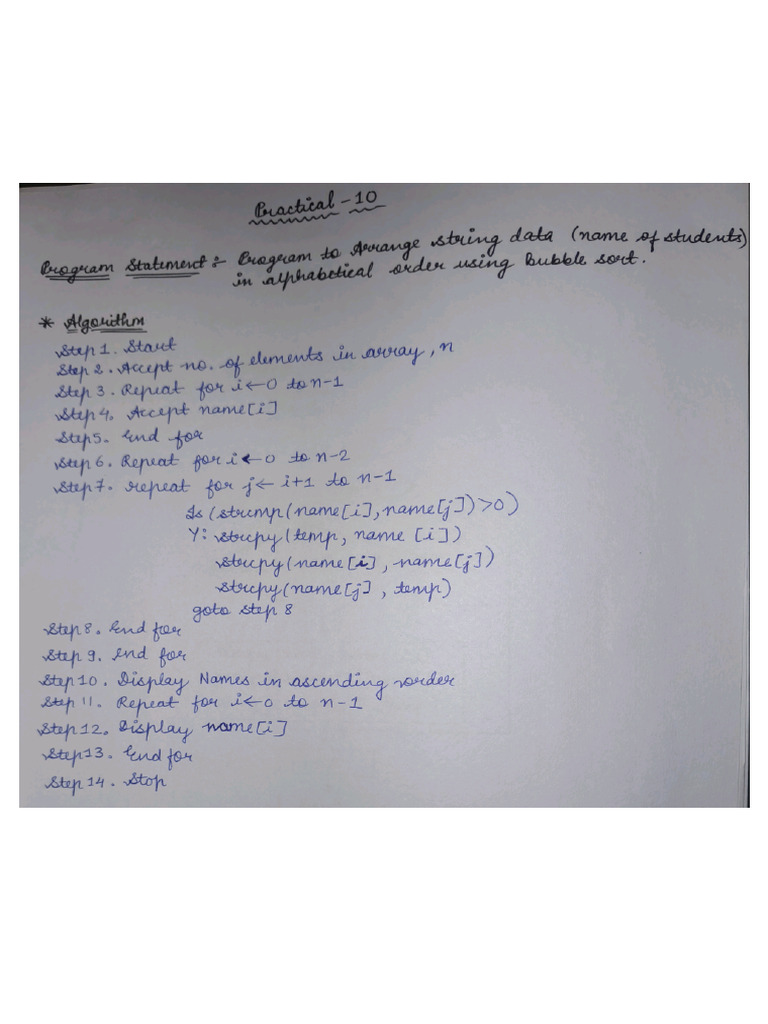 Practical - 10
Program Statement :- Program to Arrange string data (name of students)
in alphabetical order using bubble sort.
* Algorithm
Step 1. Start
Step 2. Accept no. of elements in array, n
Step 3. Repeat for i ← 0 to n-1
Step 4. Accept name[i]
Step 5. End for
Step 6. Repeat for i ← 0 to n-2
Step 7. repeat for j ← i+1 to n-1
Is (strcmp(name[i], name[j]) >0)
Y: strcpy (temp, name [i])
strcpy (name[i], name[j])
strcpy (name[j], temp)
goto step 8
Step 8. End for
Step 9. End for
Step 10. Display Names in ascending order
Step 11. Repeat for i ← 0 to n-1
Step 12. Display name[i]
Step 13. End for
Step 14. Stop